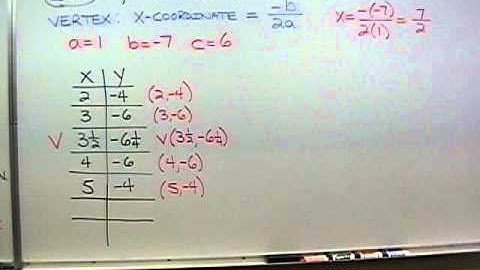 VERTEX: X-COORDINATE = -b/2a X = -(-7)/2(1) = 7/2
a=1 b=-7 c=6
X Y
2 -4 (2,-4)
3 -6 (3,-6)
V 3½ -6¼ V(3½,-6¼)
4 -6 (4,-6)
5 -4 (5,-4)